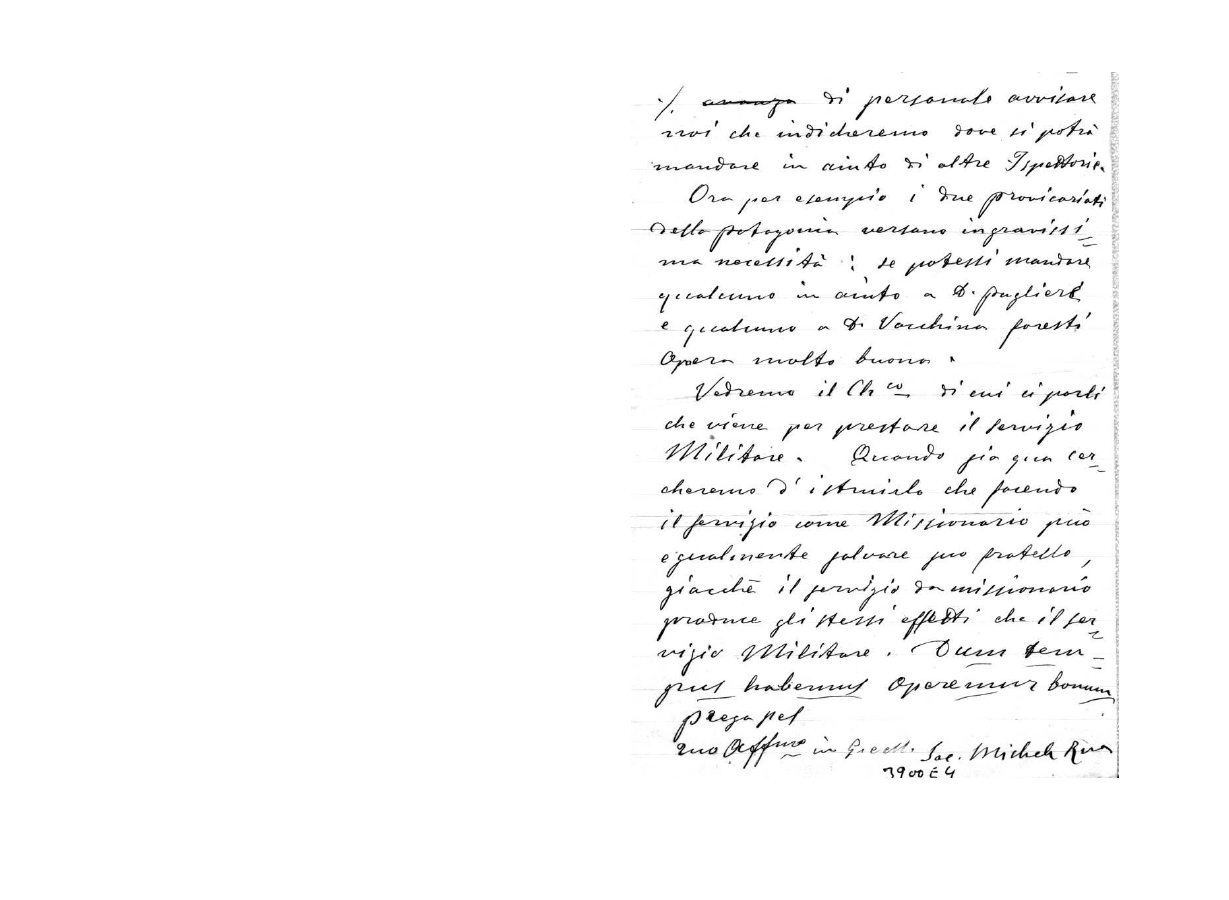 ·/. avanza di personale avvisare
noi che indicheremo dove si potrà
mandare in aiuto di altre Ispettorie.
Ora per esempio i due provicariati
della patagonia versano in gravissi=
ma necessità : se potessi mandare
qualcuno in aiuto a D. pagliere
e qualcuno a D. Vacchina faresti
Opera molto buona.
Vedremo il Ch.co di cui ci parli
che viene per prestare il servizio
Militare. Quando sia qua cer=
cheremo d'istruirlo che facendo
il servizio come Missionario può
egualmente salvare suo fratello,
giacchè il servizio da missionario
produce gli stessi effetti che il ser=
vizio Militare. Dum tem=
pus habemus Operemur bonum
prega pel
tuo Aff.mo in G. Sac. Michele Rua
3900 E 4